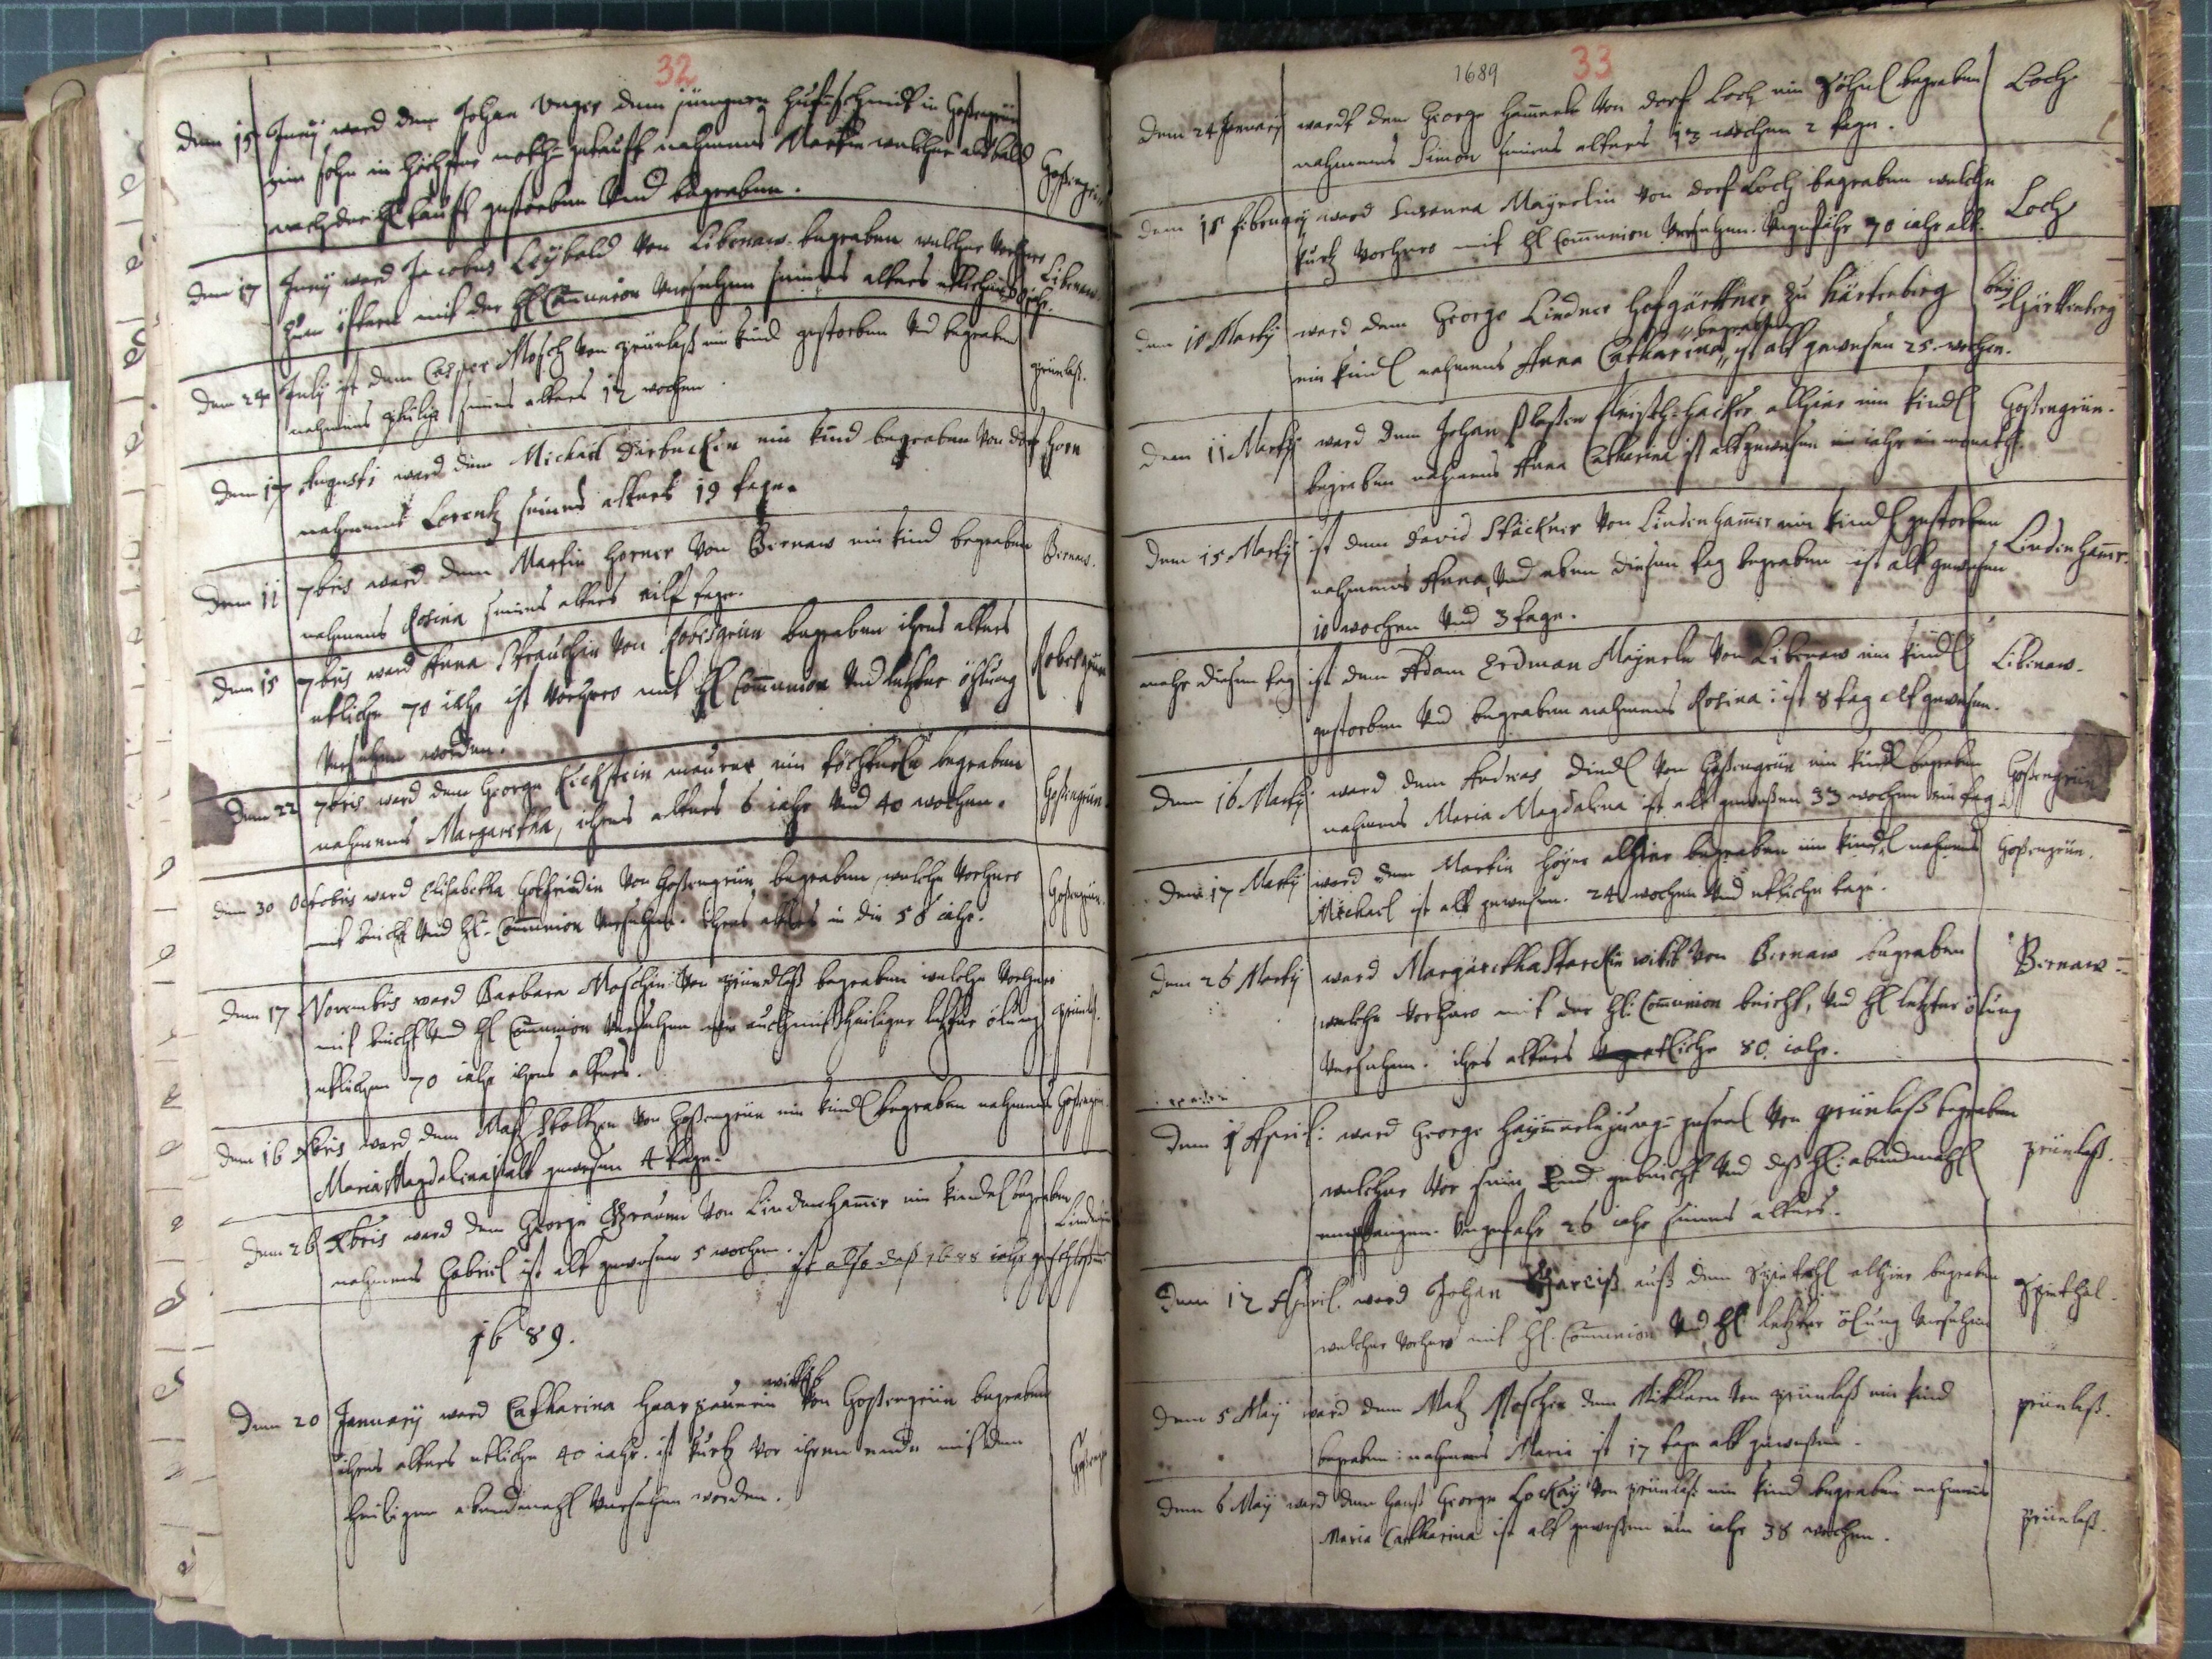 32
Dem 15 Juny ward dem Johan Unger dem jüngern Hufschmidt in Goßengrün
ein sohn in höchster noth getaufft nahmens Martin welcher alsbald
nach der Hl tauff gestorben Vnd begraben.
Goßengrün
Dem 17 Juny ward Jacobus Leÿbold Von Libenaw begraben welcher Vorhero
mit der Hl Communion Versehen seines alters
Libenaw
Dem 24 July ist dem Casper Mosch Von grünlaß ein kind gestorben Vnd begraben
nahmens Philip seines alters 12 wochen.
grünlaß.
Dem 17 Augusti ward dem Michael ein kind begraben Von dorf Horn
nahmens Lorentz seines alters 19 tage.
Dem 11 7bris ward dem Martin Horner Von Birnaw ein kind begraben
nahmens Rosina seines alters eilf tage.
Birnaw.
Dem 15 7bris ward Anna Strauchin Von Robisgrün begraben ihres alters
etliche 70 iahr ist Vorhero mit Hl Communion Vnd letzter öhlung
Versehen worden.
Robesgrün
Dem 22 7bris ward dem George Eichstein maurer ein töchterle begraben
nahmens Margaretha, ihres alters 6 iahr Vnd 40 wochen.
Goßengrün.
Dem 30 Octobris ward Elisabetha Gotfridin Von Goßengrün begraben welche Vorhero
mit beicht Vnd Hl. Communion Versehen. ihres alters in die 58 iahr.
Goßengrün.
Dem 17 Novembris ward Barbara Moschin Von gründlaß begraben welche Vorhero
mit beicht Vnd Hl Communion Versehen wie auch mit Heiliger letzter ölung
etlichen 70 iahr ihres alters.
grünlaß.
Dem 16 Xbris ward dem Matz Stoltzen Von Goßengrün ein kindl begraben nahmens
Maria Magdalena ist alt gewesen 4 tage.
Goßengrün.
Dem 26 Xbris ward dem George Von Lindenhamer ein kindel begraben
nahmens Gabriel ist alt gewesen 5 wochen. ist also daß 1688 iahr geschlossen
1689.
Dem 20 January ward Catharina Haarpaurin wittib Von Goßengrün begraben
ihres alters etliche 40 iahr. ist kurtz Vor ihrem ende mit dem
heiligen abendmahl Versehen worden.
1689
33
Dem 24 January wardt dem George Hamerle Von dorf Loch ein Söhnl begraben
nahmens Simon seines alters 13 wochen 2 tage.
Loch
Dem 18 februarÿ ward Susanna Mayerlin Von dorf Loch begraben welche
kurtz Vorhero mit Hl Communion Versehen. Vngefähr 70 iahr alt.
Loch
Dem 10 Marty ward dem George Lindner Hofgärttner zu Härtenberg
ein kindl nahmens Anna Catharina begraben ist alt gewesen 25 wochen.
beÿ Härttenberg
Dem 11 Marty ward dem Johan fleisch-hacker alhier ein kindl
begraben nahmens Anna Catharina ist alt gewesen ein iahr ein monath.
Goßengrün.
Dem 15 Marty ist dem David Stäckner Von Lindenhamer ein kindl gestorben
nahmens Anna, Vnd eben diesen tag begraben ist alt gewesen
10 wochen Vnd 3 tage.
Lindenhamer.
mehr diesen tag ist dem Adam Erdman Mayerle Von Libenaw ein kindl
gestorben Vnd begraben nahmens Rosina: ist 8 tag alt gewesen.
Libenaw.
Dem 16 Marty ward dem Andreas Diedl Von Goßengrün ein kindl begraben
nahmens Maria Magdalena ist alt gewesen 33 wochen ein tag.
Goßengrün
Dem 17 Marty ward dem Martin Hoyer alhier begraben ein kindl nahmens
Michael ist alt gewesen 24 wochen Vnd etliche tage.
Goßengrün.
Dem 26 Marty ward Margaretha Starckin wittib Von Birnaw begraben
welche Vorhero mit der Hl: Communion beicht, Vnd Hl letzter ölung
Versehen. ihres alters etliche 80 iahr.
Birnaw
Dem 1 April: ward George Haymerle jung-gesel Von grünlaß begraben
welcher Vor sein End gebeicht Vnd daß Hl: abendmahl
empfangen. Vngefahr 26 iahr seines alters.
grünlaß.
Dem 12 April. ward Johan Narciß auß dem Spittahl alhier begraben
welcher Vorhero mit Hl. Communion Vnd Hl letzter ölung Versehen
Spitthal.
Dem 5 May ward dem Matz Moschen dem Mitlern Von grünlaß ein kind
begraben: nahmens Maria ist 17 tage alt gewesen.
grünlaß.
Dem 6 May ward dem Hanß George Lockay Von grünlaß ein kind begraben nahmens
Maria Catharina ist alt gewesen ein iahr 38 wochen.
grünlaß.